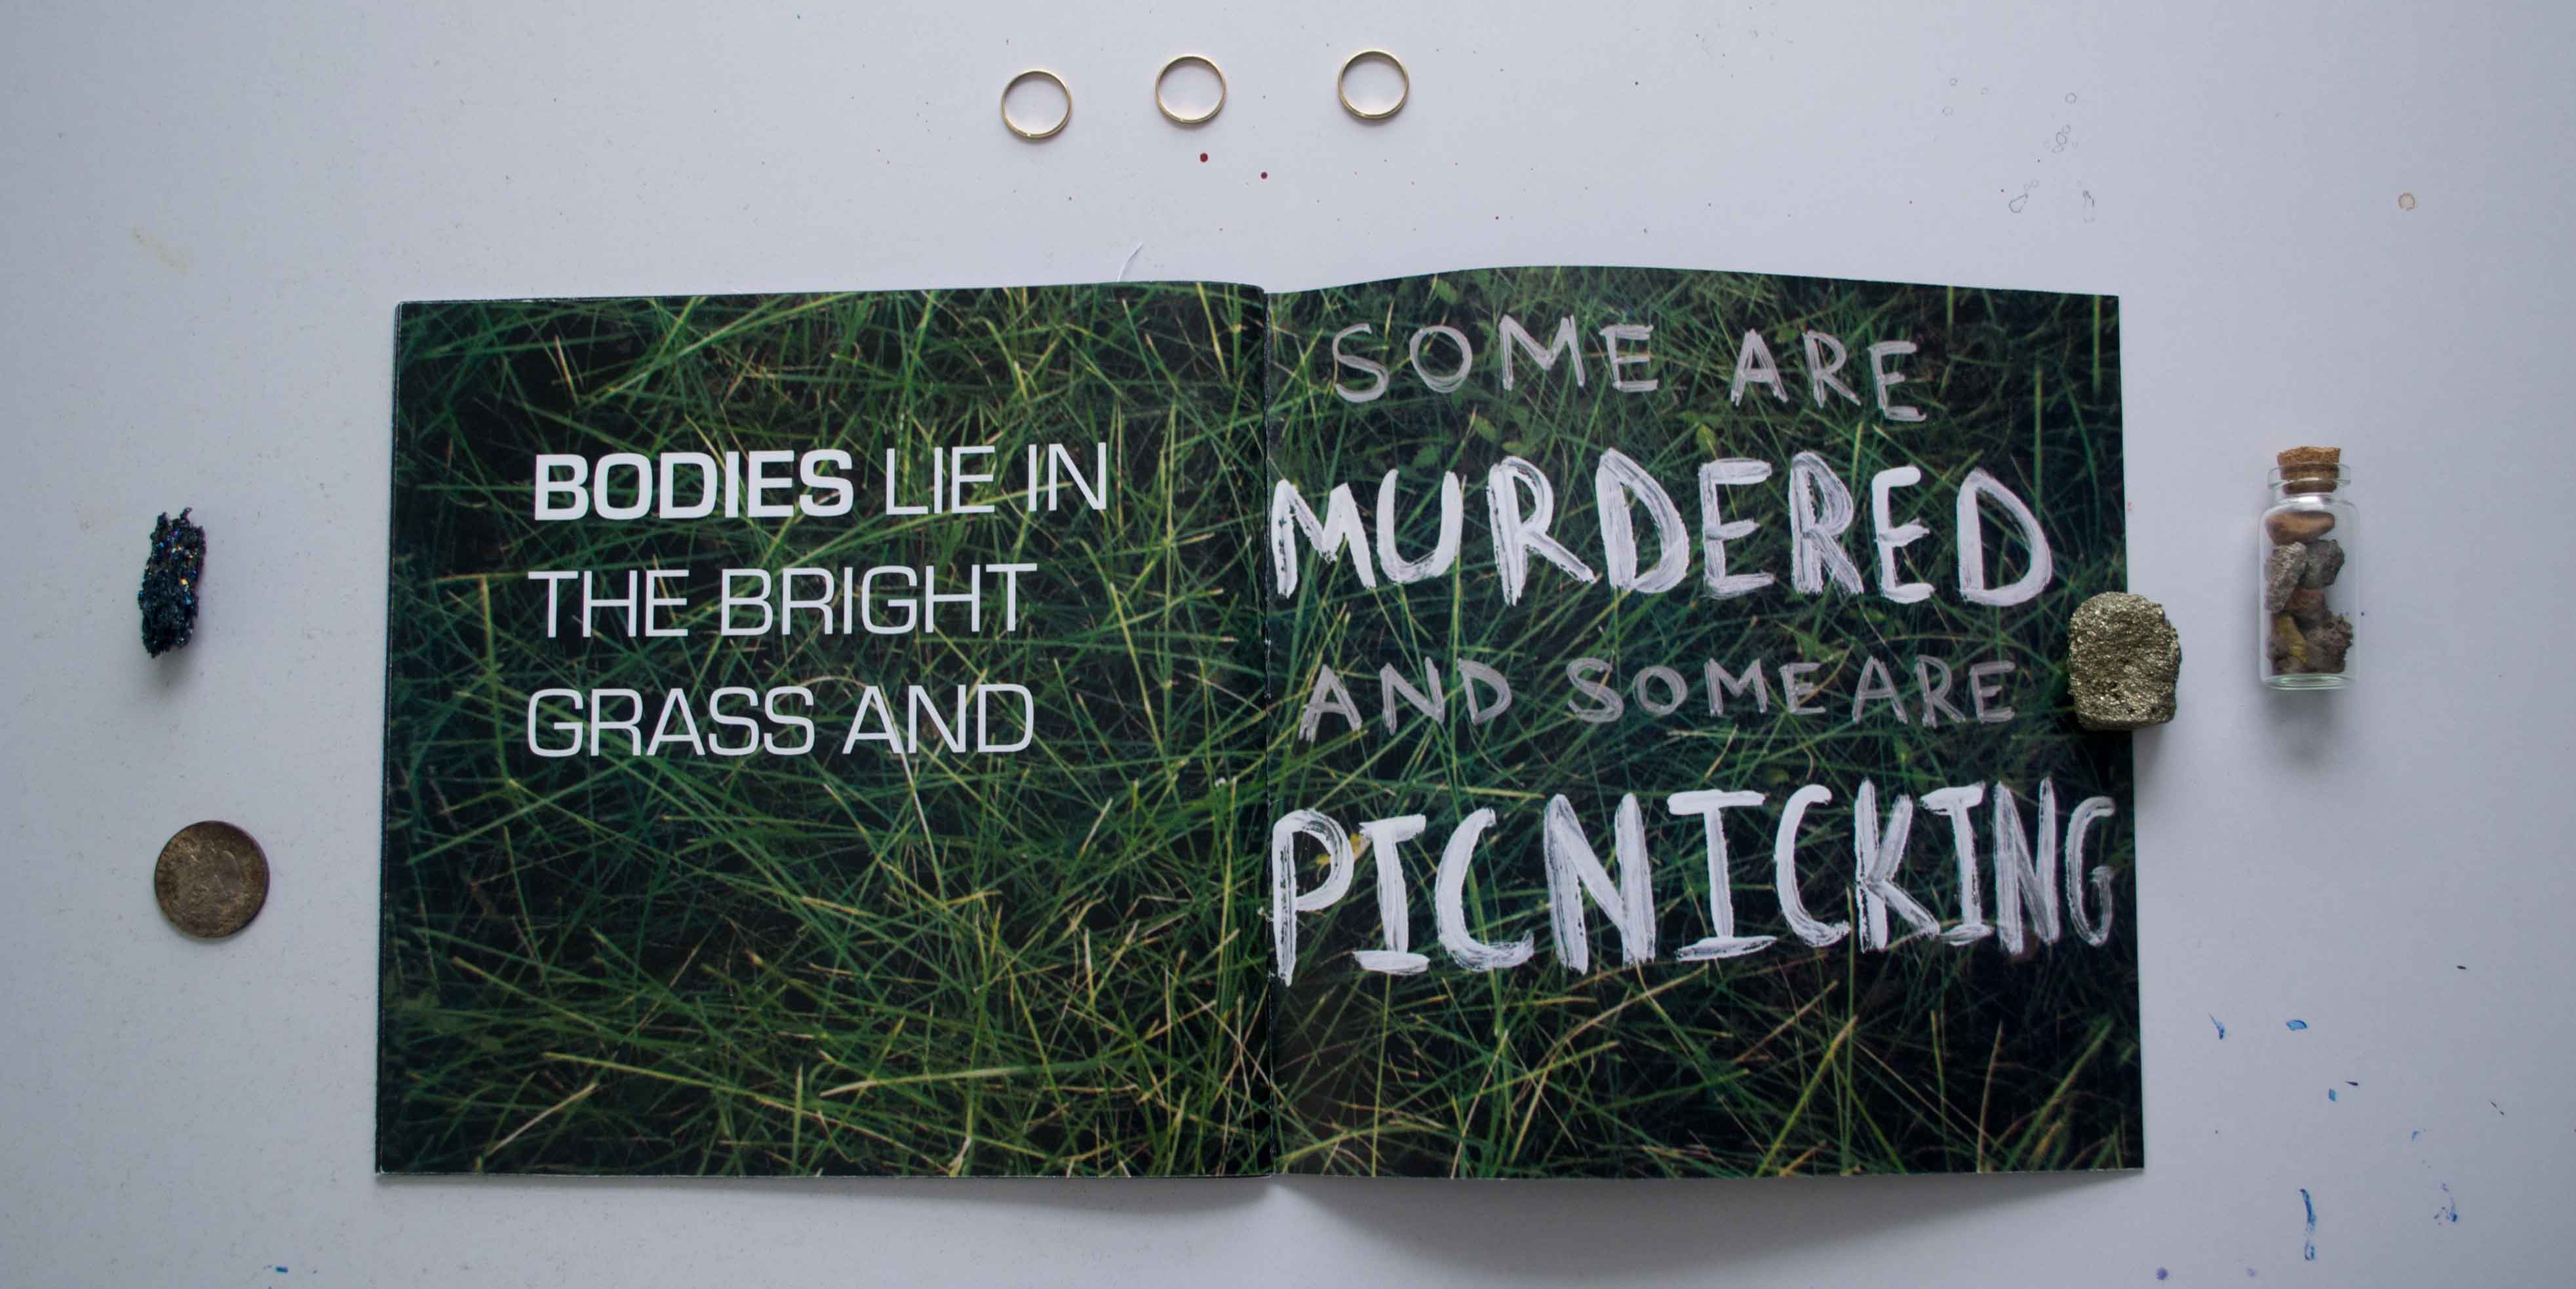 BODIES LIE IN
THE BRIGHT
GRASS AND
SOME ARE
MURDERED
AND SOME ARE
PICNICKING